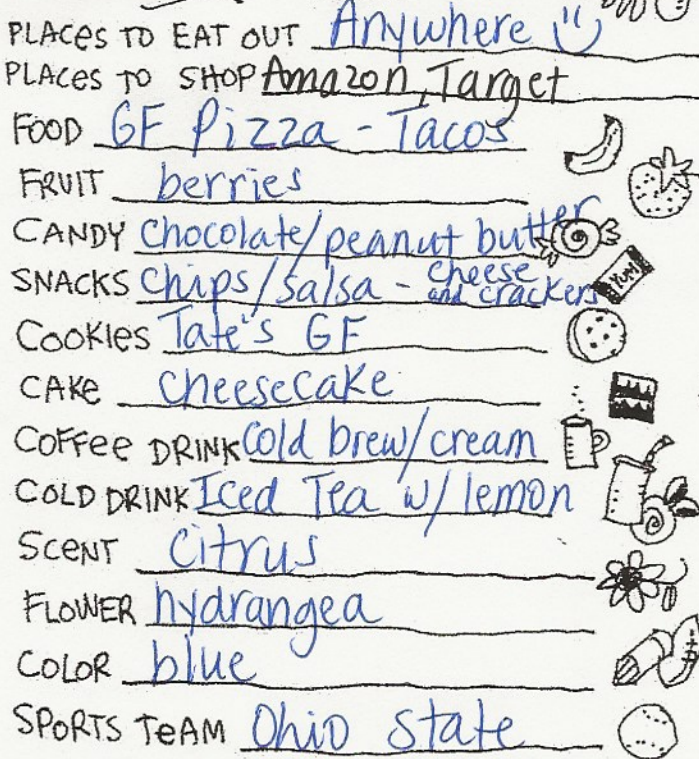 PLACES TO EAT OUT Anywhere
PLACES TO SHOP Amazon, Target
FOOD GF Pizza - Tacos
FRUIT berries
CANDY Chocolate/peanut butter
SNACKS chips/salsa - cheese and crackers
YUM!
COOKIES Tate's GF
CAKE cheesecake
COFFEE DRINK Cold brew/cream
COLD DRINK Iced Tea w/ lemon
SCENT Citrus
FLOWER hydrangea
COLOR blue
SPORTS TEAM Ohio State